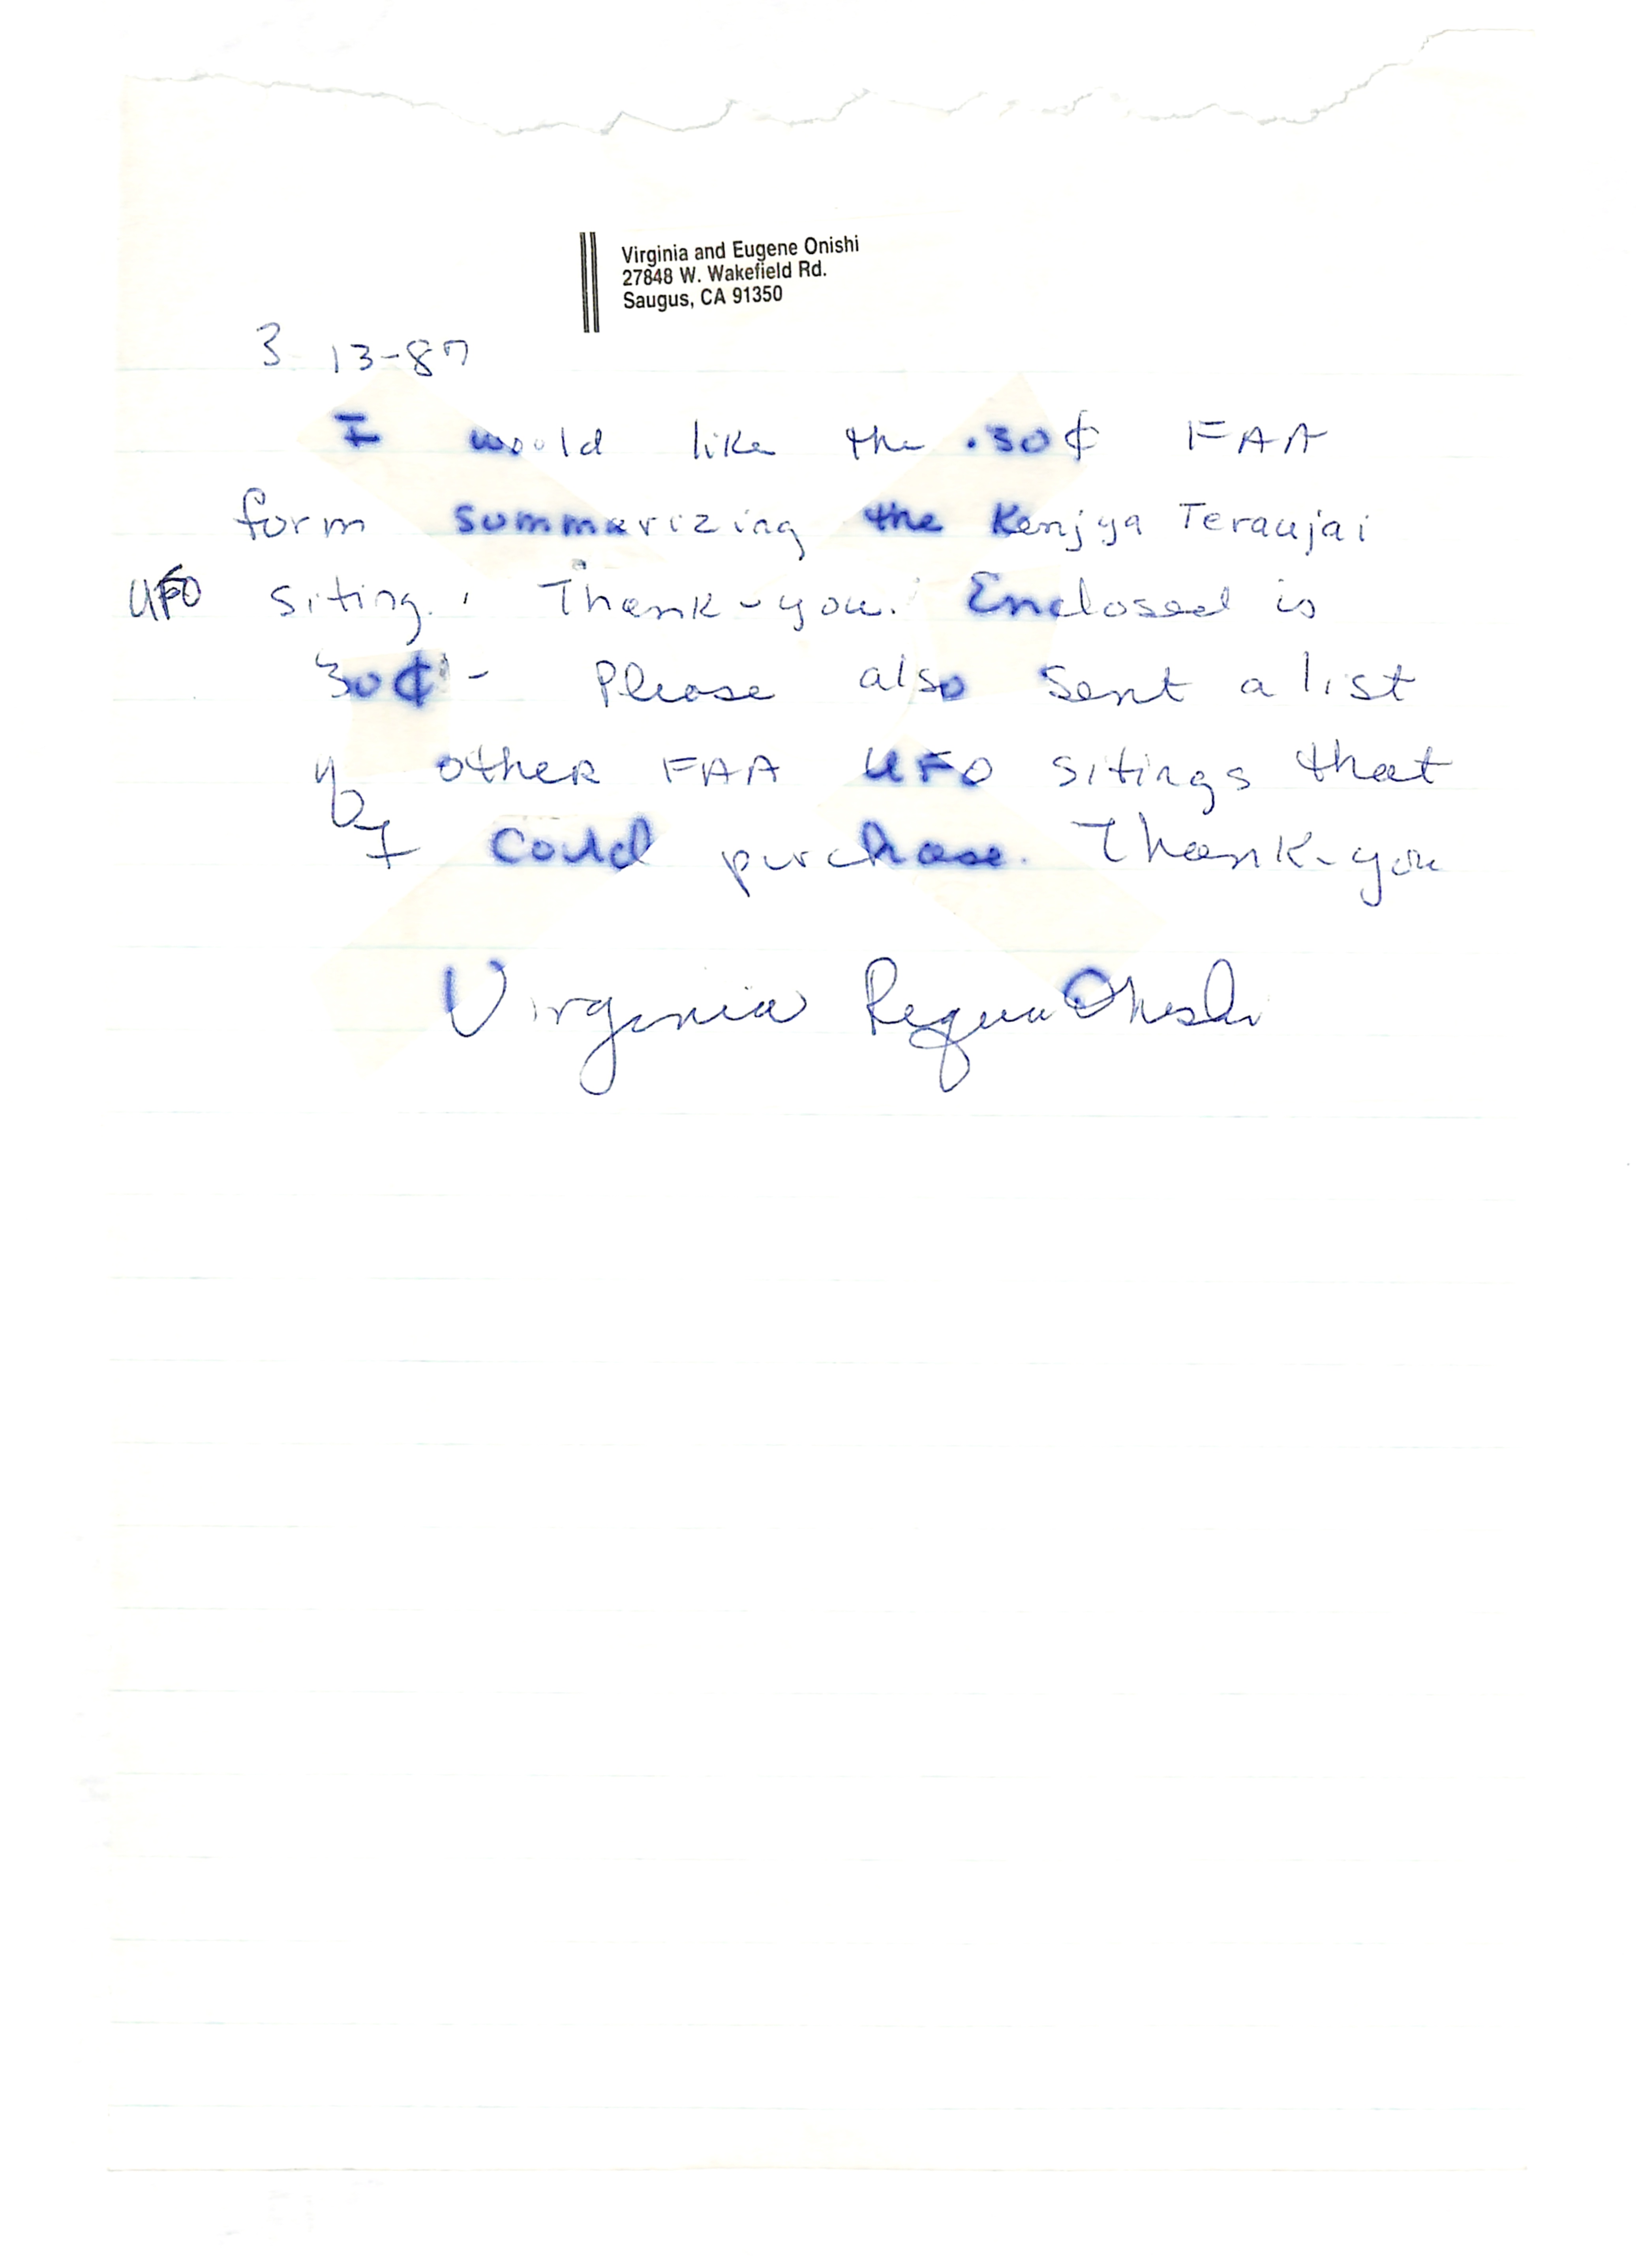 Virginia and Eugene Onishi
27848 W. Wakefield Rd.
Saugus, CA 91350
3 13-87
I would like the .30¢ FAA
form summarizing the Kenjya Teraujai
UFO siting. Thank-you. Enclosed is
30¢ - Please also sent a list
of other FAA UFO sitings that
I could purchase. Thank-you
Virginia Requa Onishi